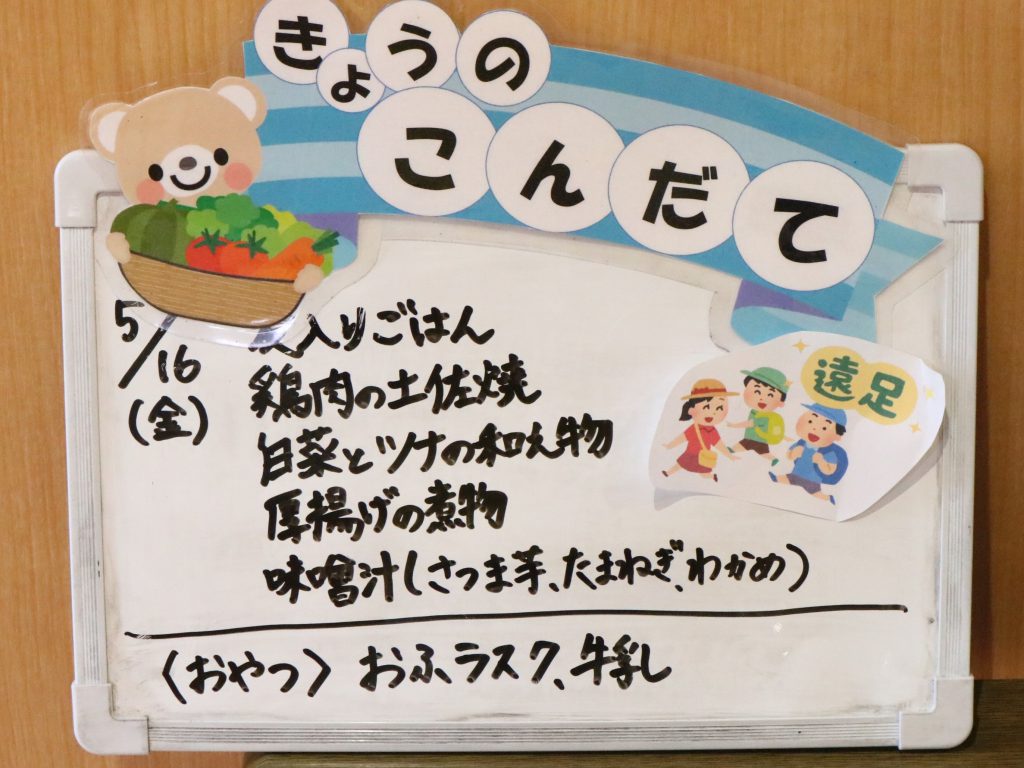 きょうの
こんだて
5/16
(金)
入りごはん
鶏肉の土佐焼
白菜とツナの和え物
厚揚げの煮物
味噌汁(さつま芋、たまねぎ、わかめ)
〈おやつ〉 おふラスク、牛乳
遠足